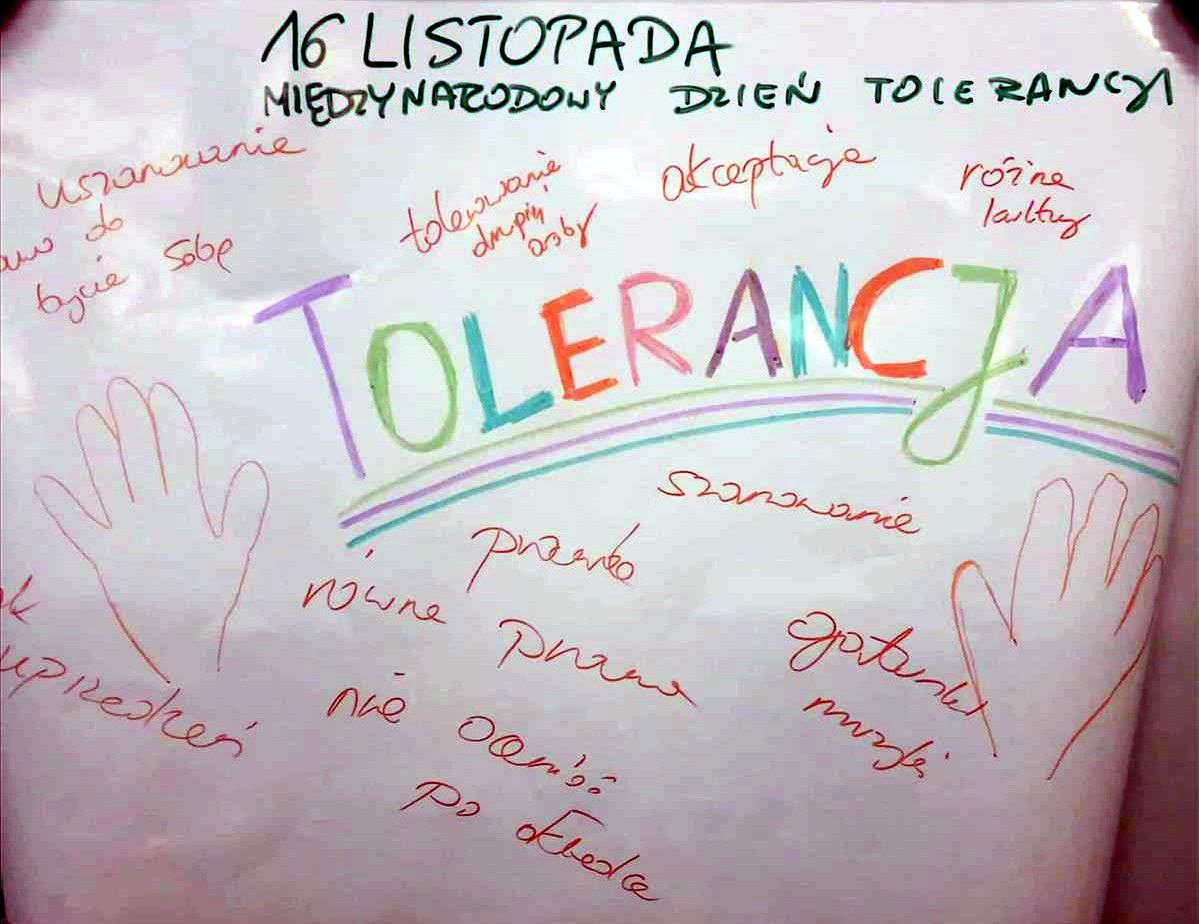 16 LISTOPADA
MIĘDZYNARODOWY DZIEŃ TOLERANCJI
uszanowanie
do
bycie sobą
tolerowanie
drugiej
osoby
akceptacja
różne
kultury
TOLERANCJA
szanowanie
równe
prawa
uprzedzeń
nie oceniać
po okładce
gatunki
muzyki